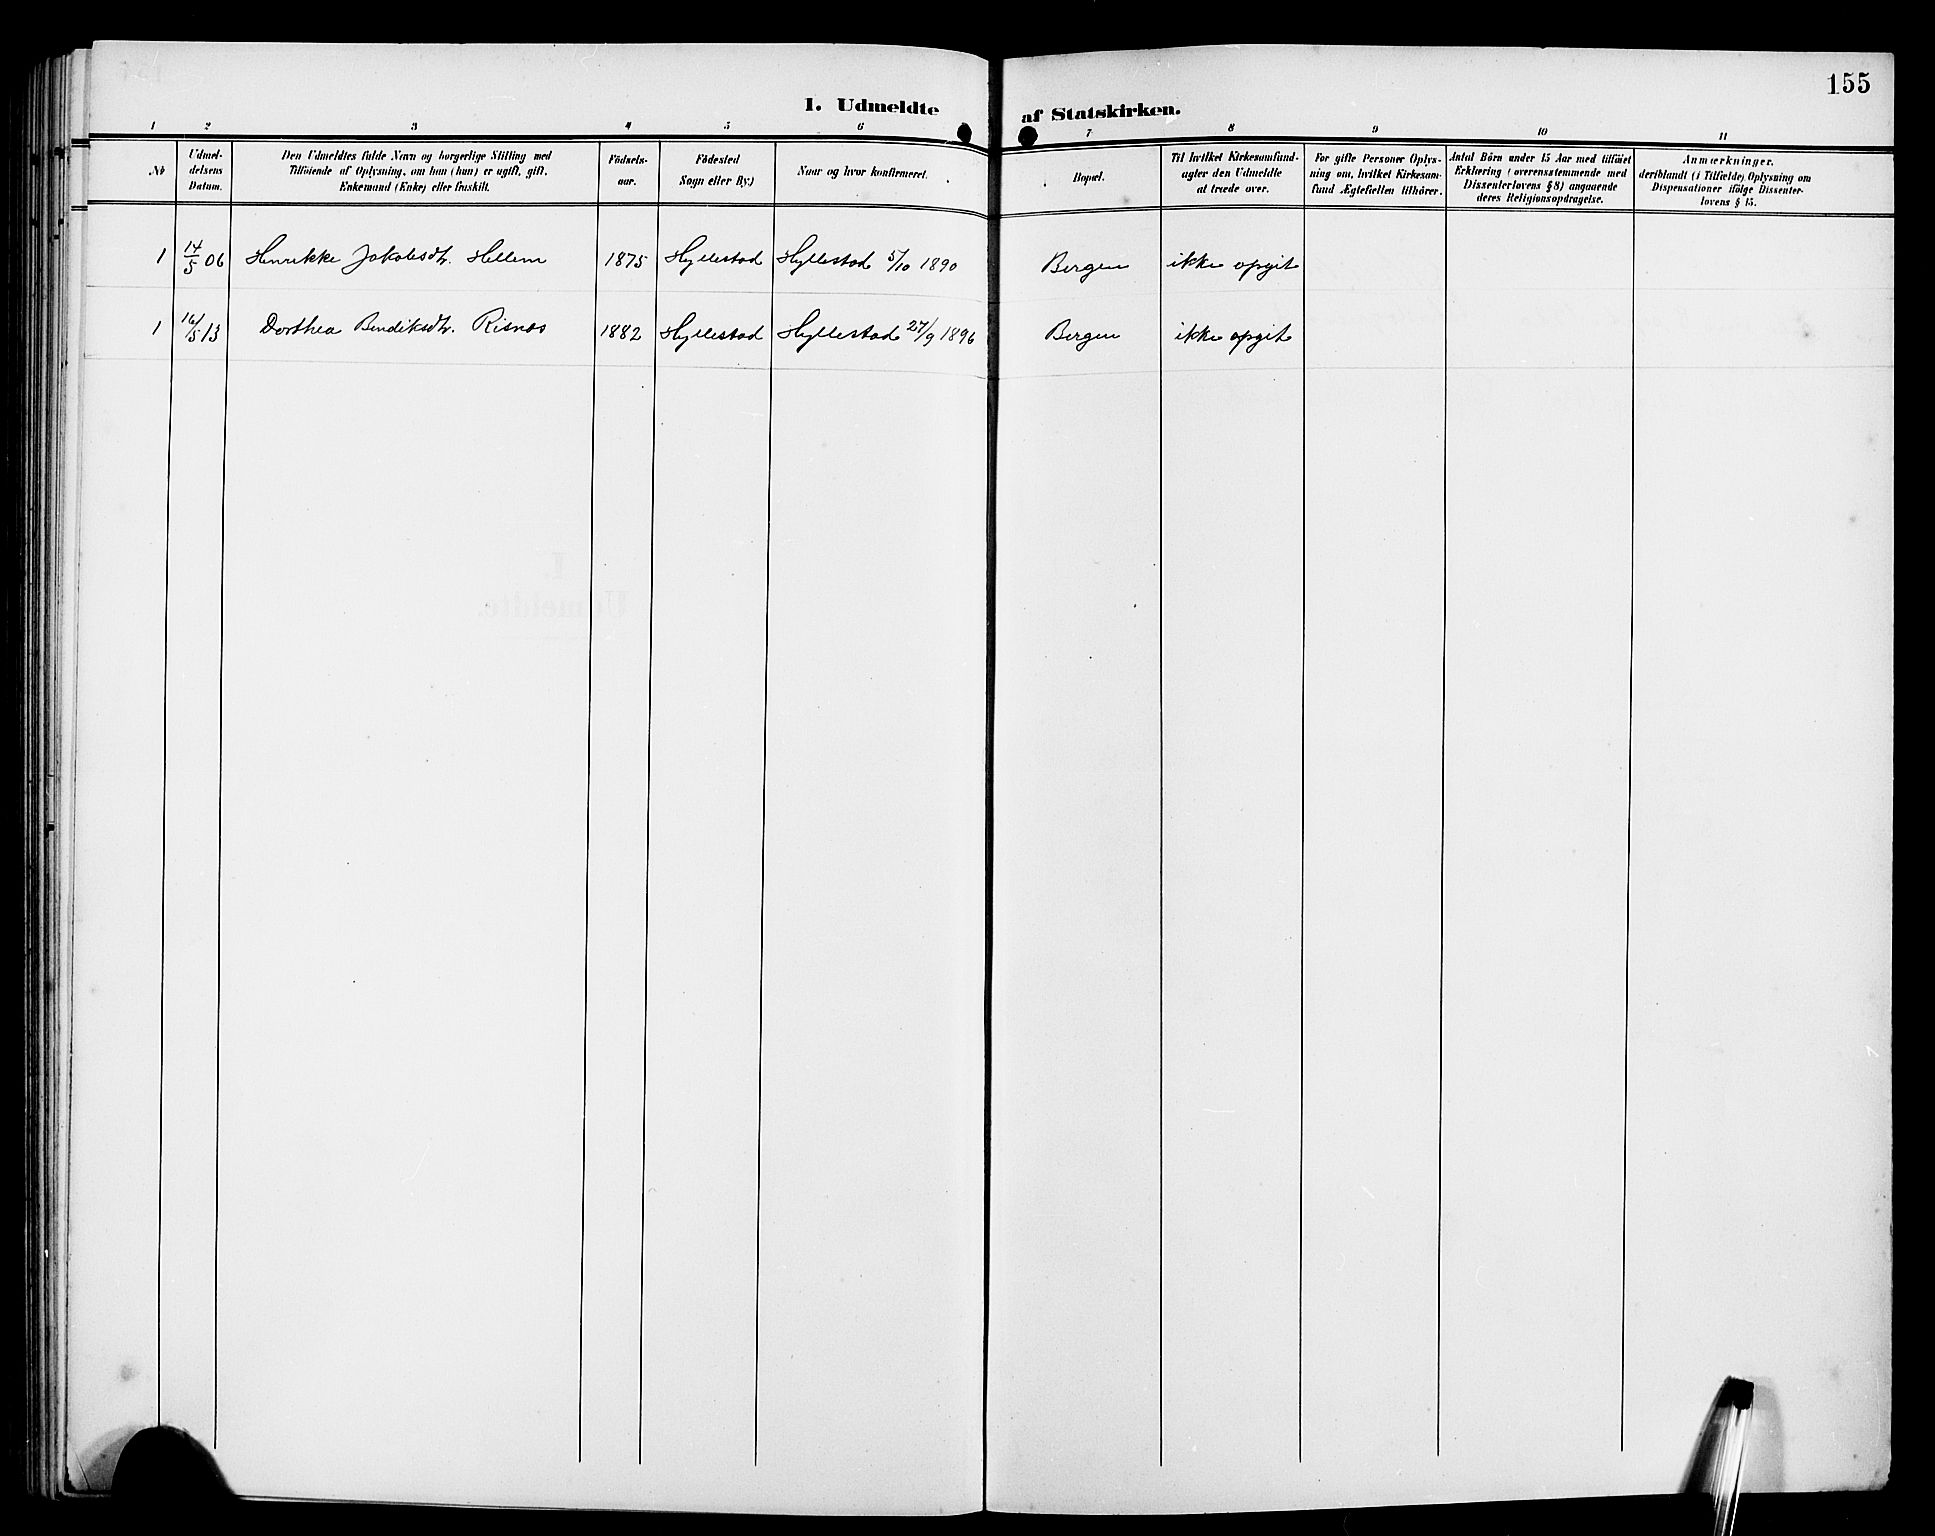 155
I. Udmeldte af Statskirken.
1 2 3 4 5 6 7 8 9 10 11
No
Udmel-
delsens
Datum.
Den Udmeldtes fulde Navn og borgerlige Stilling med
Tilføiende af Oplysning, om han (hun) er ugift, gift,
Enkemand (Enke) eller fraskilt.
Fødsels-
aar.
Fødested
Sogn eller By.)
Naar og hvor konfirmeret.
Bopæl.
Til hvilket Kirkesamfund
agter den Udmeldte
at træde over.
For gifte Personer Oplys-
ning om, hvilket Kirkesam-
fund Ægtefællen tilhører.
Antal Børn under 15 Aar med tilføiet
Erklæring (overensstemmende med
Dissenterlovens § 8) angaaende
deres Religionsopdragelse.
Anmærkninger,
deriblandt (i Tilfælde) Oplysning om
Dispensationer ifølge Dissenter-
lovens § 15.
1 14/5 06 Henrikke Jakobsdtr. Hellem 1875 Hyllestad Hyllestad 5/10 1890 Bergen ikke opgit
1 16/5 13 Dorthea Bendiksdtr. Risnæs 1882 Hyllestad Hyllestad 27/9 1896 Bergen ikke opgit